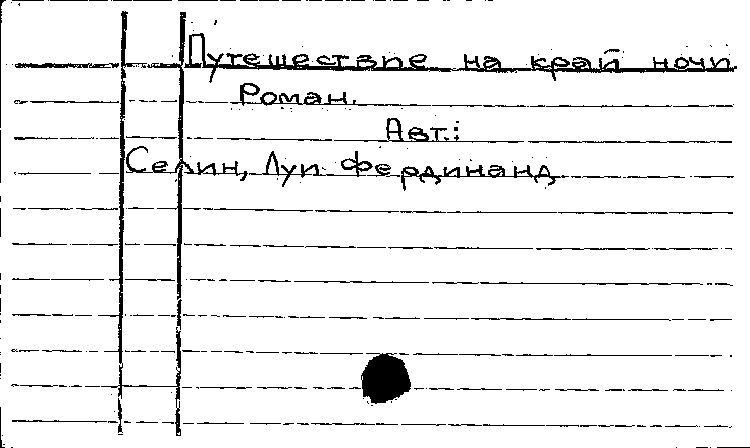 Путешествие на край ночи.
Роман.
Авт.:
Селин, Луи Фердинанд